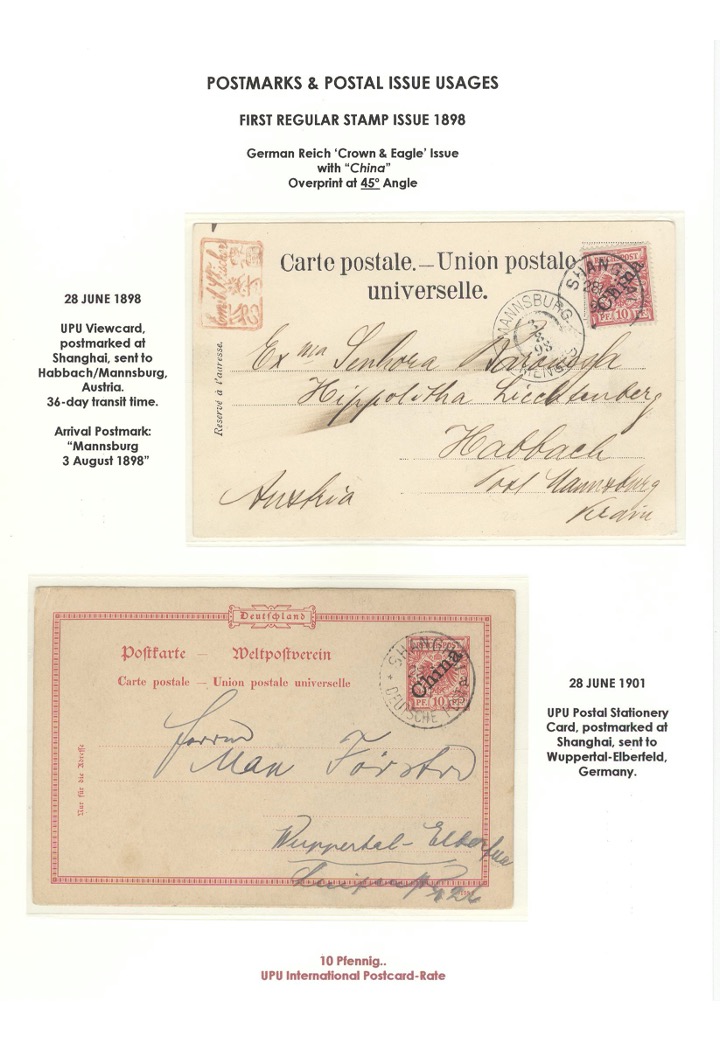 POSTMARKS & POSTAL ISSUE USAGES
FIRST REGULAR STAMP ISSUE 1898
German Reich ‘Crown & Eagle’ Issue
with “China”
Overprint at 45° Angle
28 JUNE 1898
UPU Viewcard,
postmarked at
Shanghai, sent to
Habbach/Mannsburg,
Austria.
36-day transit time.
Arrival Postmark:
“Mannsburg
3 August 1898”
Carte postale. — Union postale
universelle.
Reservé à l'auresse.
SHANG
China
PF 10 PF
MANNSBURG
Exma Senhora
Hippolitha Liechtenberg
Habbach
Post Mannsburg
Krain
Austria
Deutschland
Postkarte — Weltpostverein
Carte postale — Union postale universelle
Nur für die Adresse
SHANG
DEUTSCHE
China
PF 10 PF
Herrn
Max
Wuppertal-Elberfeld
28 JUNE 1901
UPU Postal Stationery
Card, postmarked at
Shanghai, sent to
Wuppertal-Elberfeld,
Germany.
10 Pfennig..
UPU International Postcard-Rate